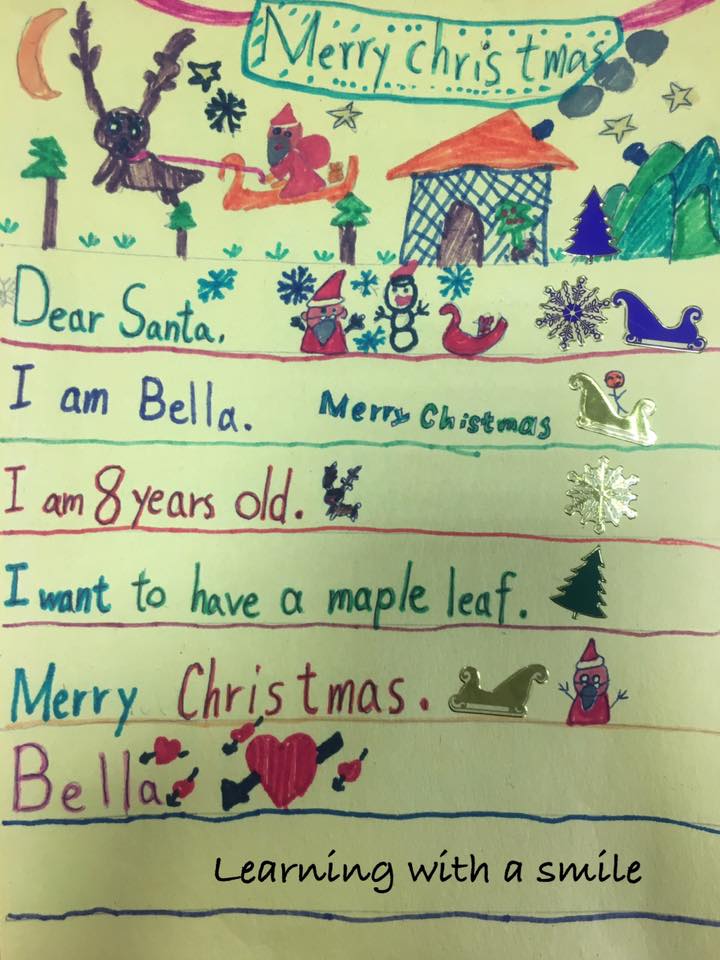 Merry christmas
Dear Santa,
I am Bella. Merry Chistmas
I am 8 years old.
I want to have a maple leaf.
Merry Christmas.
Bella
Learning with a smile